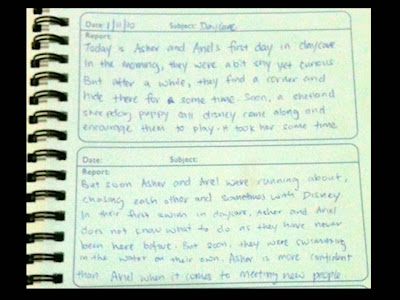 Date: 1/11/10 Subject: Daycare
Report:
Today is Asher and Ariel's first day in daycare
In the morning, they were abit shy yet curious
But after a while, they find a corner and
hide there for some time. Soon, a shetland
sheepdog puppy call disney came along and
encourage them to play. It took her some time
Date: Subject:
Report:
But soon Asher and Ariel were running about,
chasing each other and sometimes with Disney.
In their first swim in daycare, Asher and Ariel
does not know what to do as they have never
been here before. But soon, they were swimming
in the water on their own. Asher is more confident
than Ariel when it comes to meeting new people